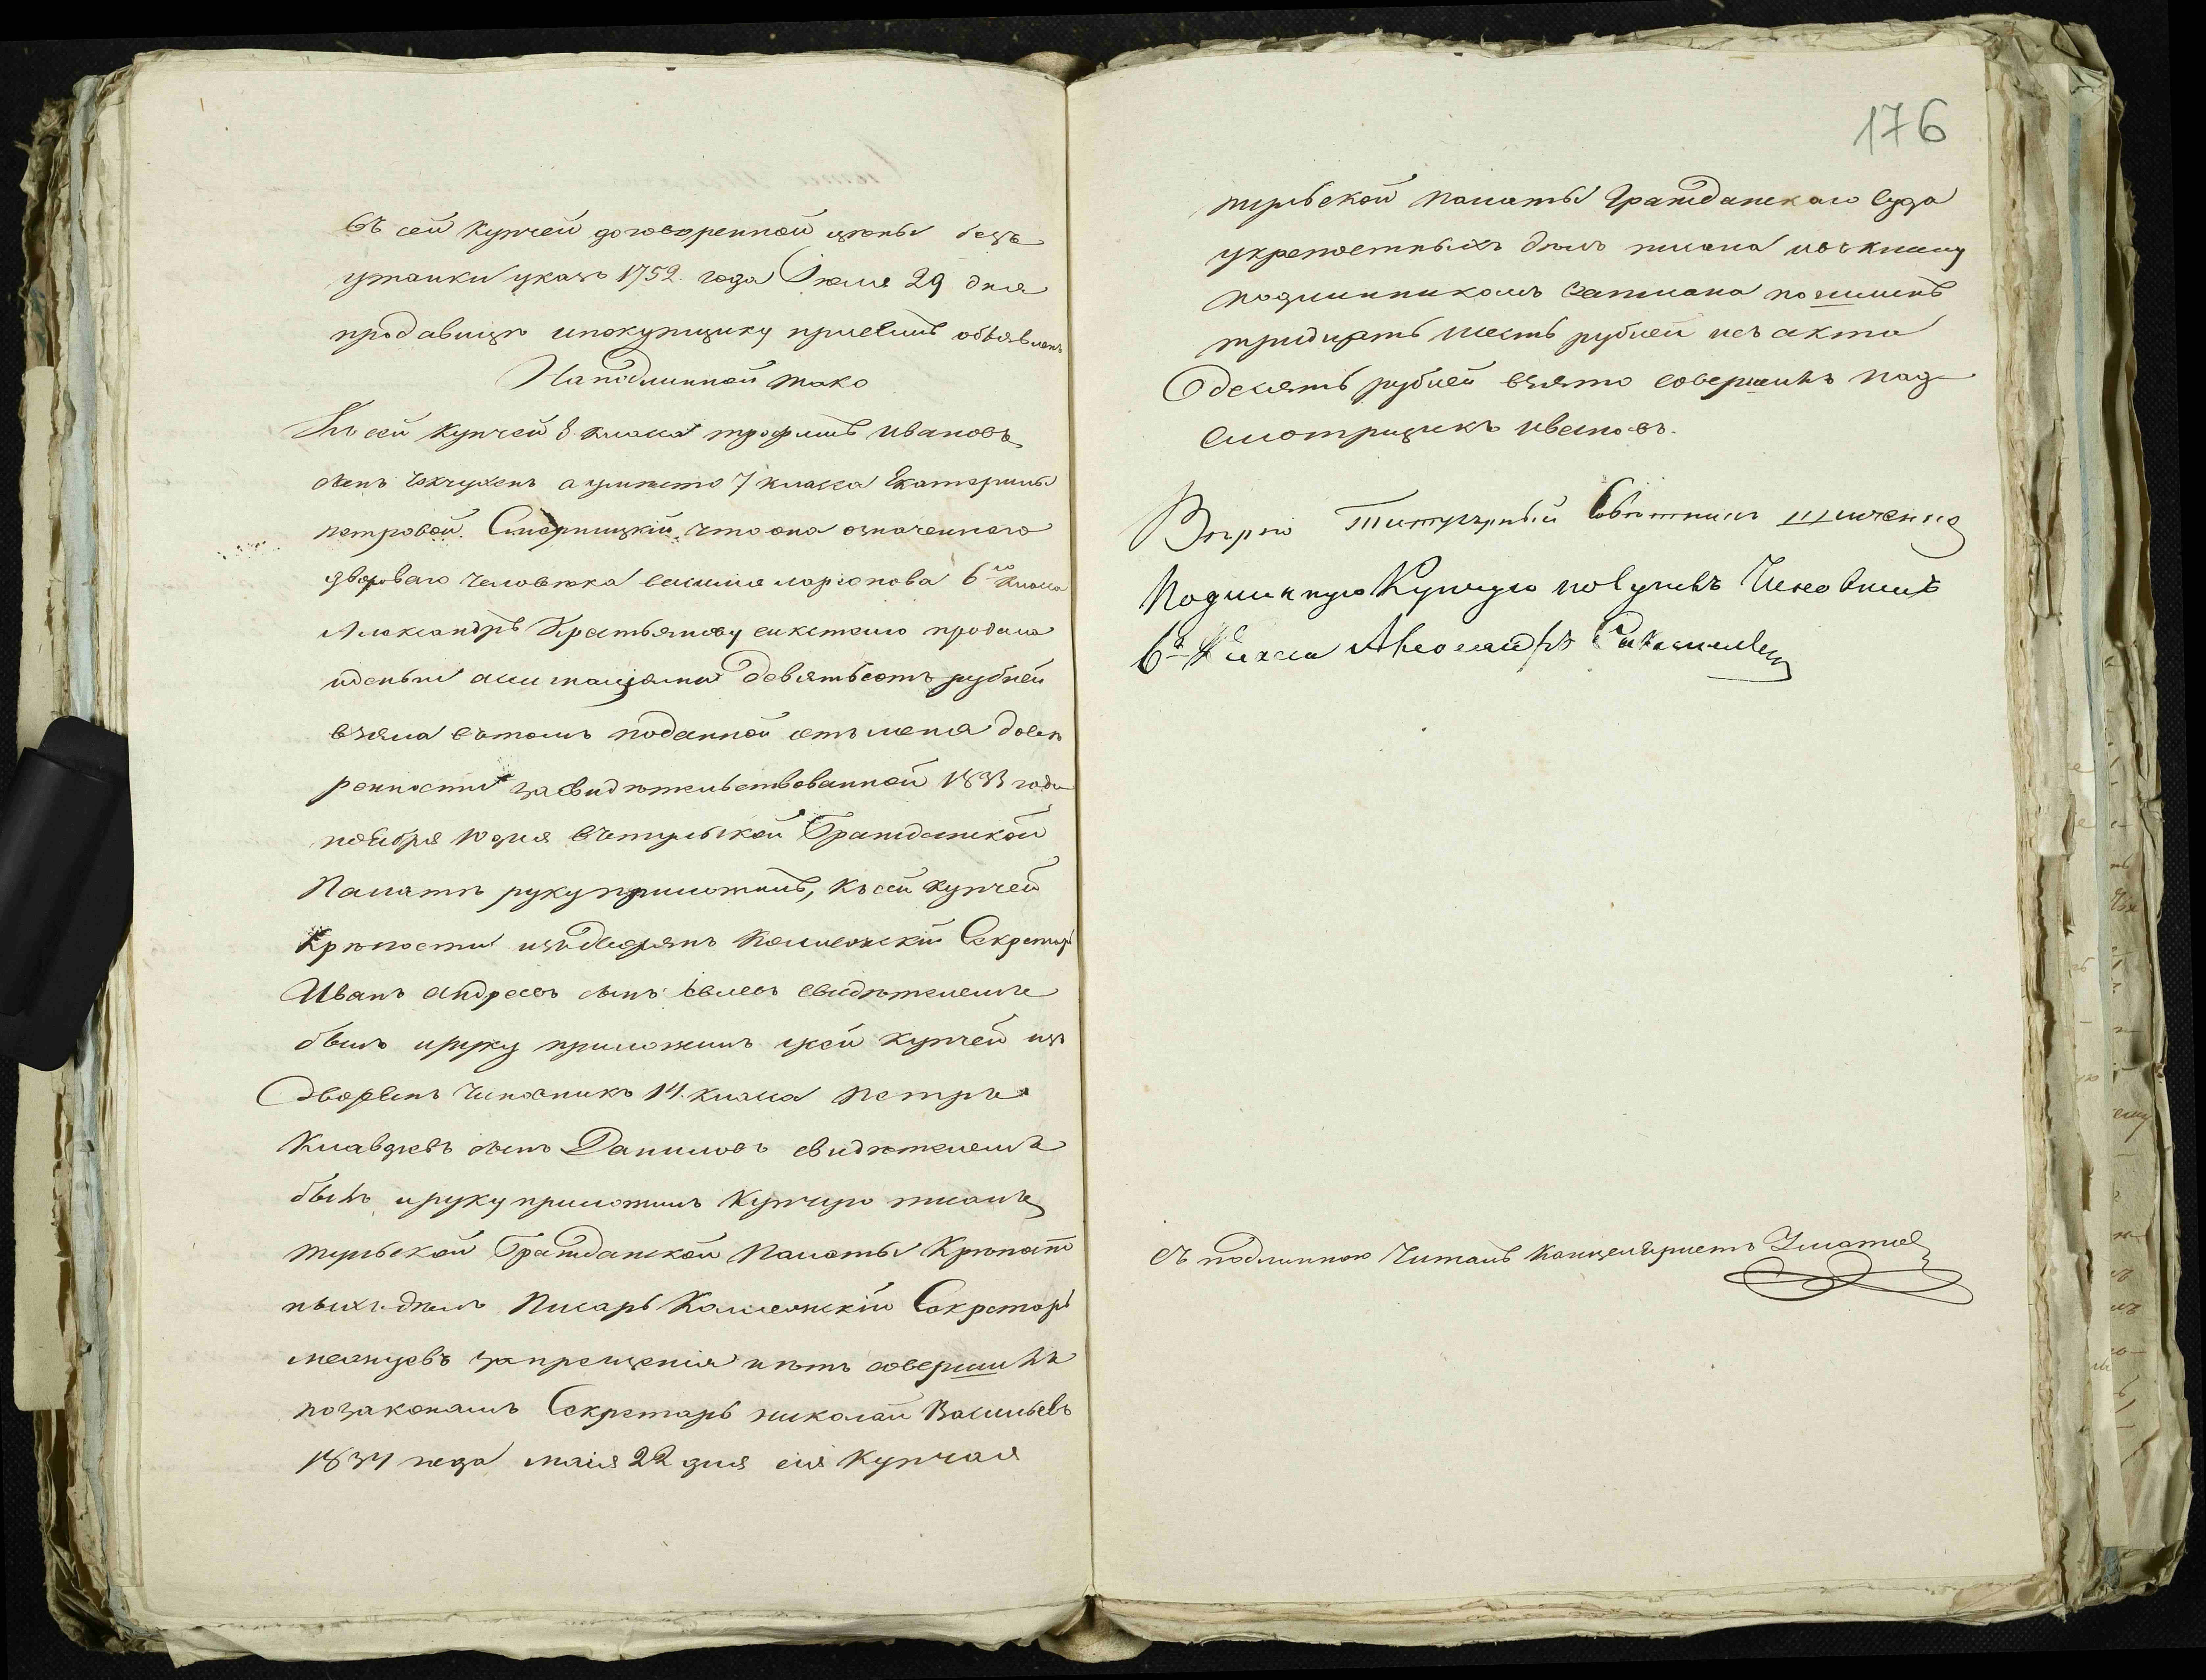 въ сей купчей договоренной цены безъ
утайки указъ 1752. года Июля 29 дня
продавице ипокупщику прислан объявленъ
Наподлинной тако
Къ сей купчей 8 класса трофимъ Ивановъ
сынъ а уместо 7 класса Екатерины
петровой что она означеннаго
двороваго человека ларионова 6го класса
Александръ продала
иденьги ассигнациями девятьсотъ рублей
взяла вътомъ поданной отъ меня довѣ
ренности засвидѣтельствованной 1833 года
ноября 10 дня вътульской Гражданской
Палатѣ руку приложилъ, къ сей купчей
крѣпости издворянъ Коллежский Секретарь
Иванъ андреевъ сынъ свидѣтелемъ
былъ ируку приложилъ ксей купчей изъ
дворянъ чиновникъ 14. класса петръ
Клавдиевъ сынъ Даниловъ свидѣтелемъ
былъ ируку приложилъ купчую писалъ
тульской Гражданской палаты Крѣпост
ныхъ дѣлъ Писарь Коллежский Секретарь
запрещения нѣтъ совершить
позаконамъ Секретарь николай Васильевъ
1834 года маия 22 дня сия купчая
176
тульской палаты Гражданскаго Суда
укрепостныхъ делъ писана ивъ книгу
подлинникомъ записана пошлинъ
тридцать шесть рублей исъ акта
десять рублей взято совершилъ над
смотрщикъ Ивановъ.
Верно Титулярный Советникъ
Подлинную Купчую получилъ Чиновникъ
6го Класса Александръ
Съ подлинною Читалъ Канцеляристъ